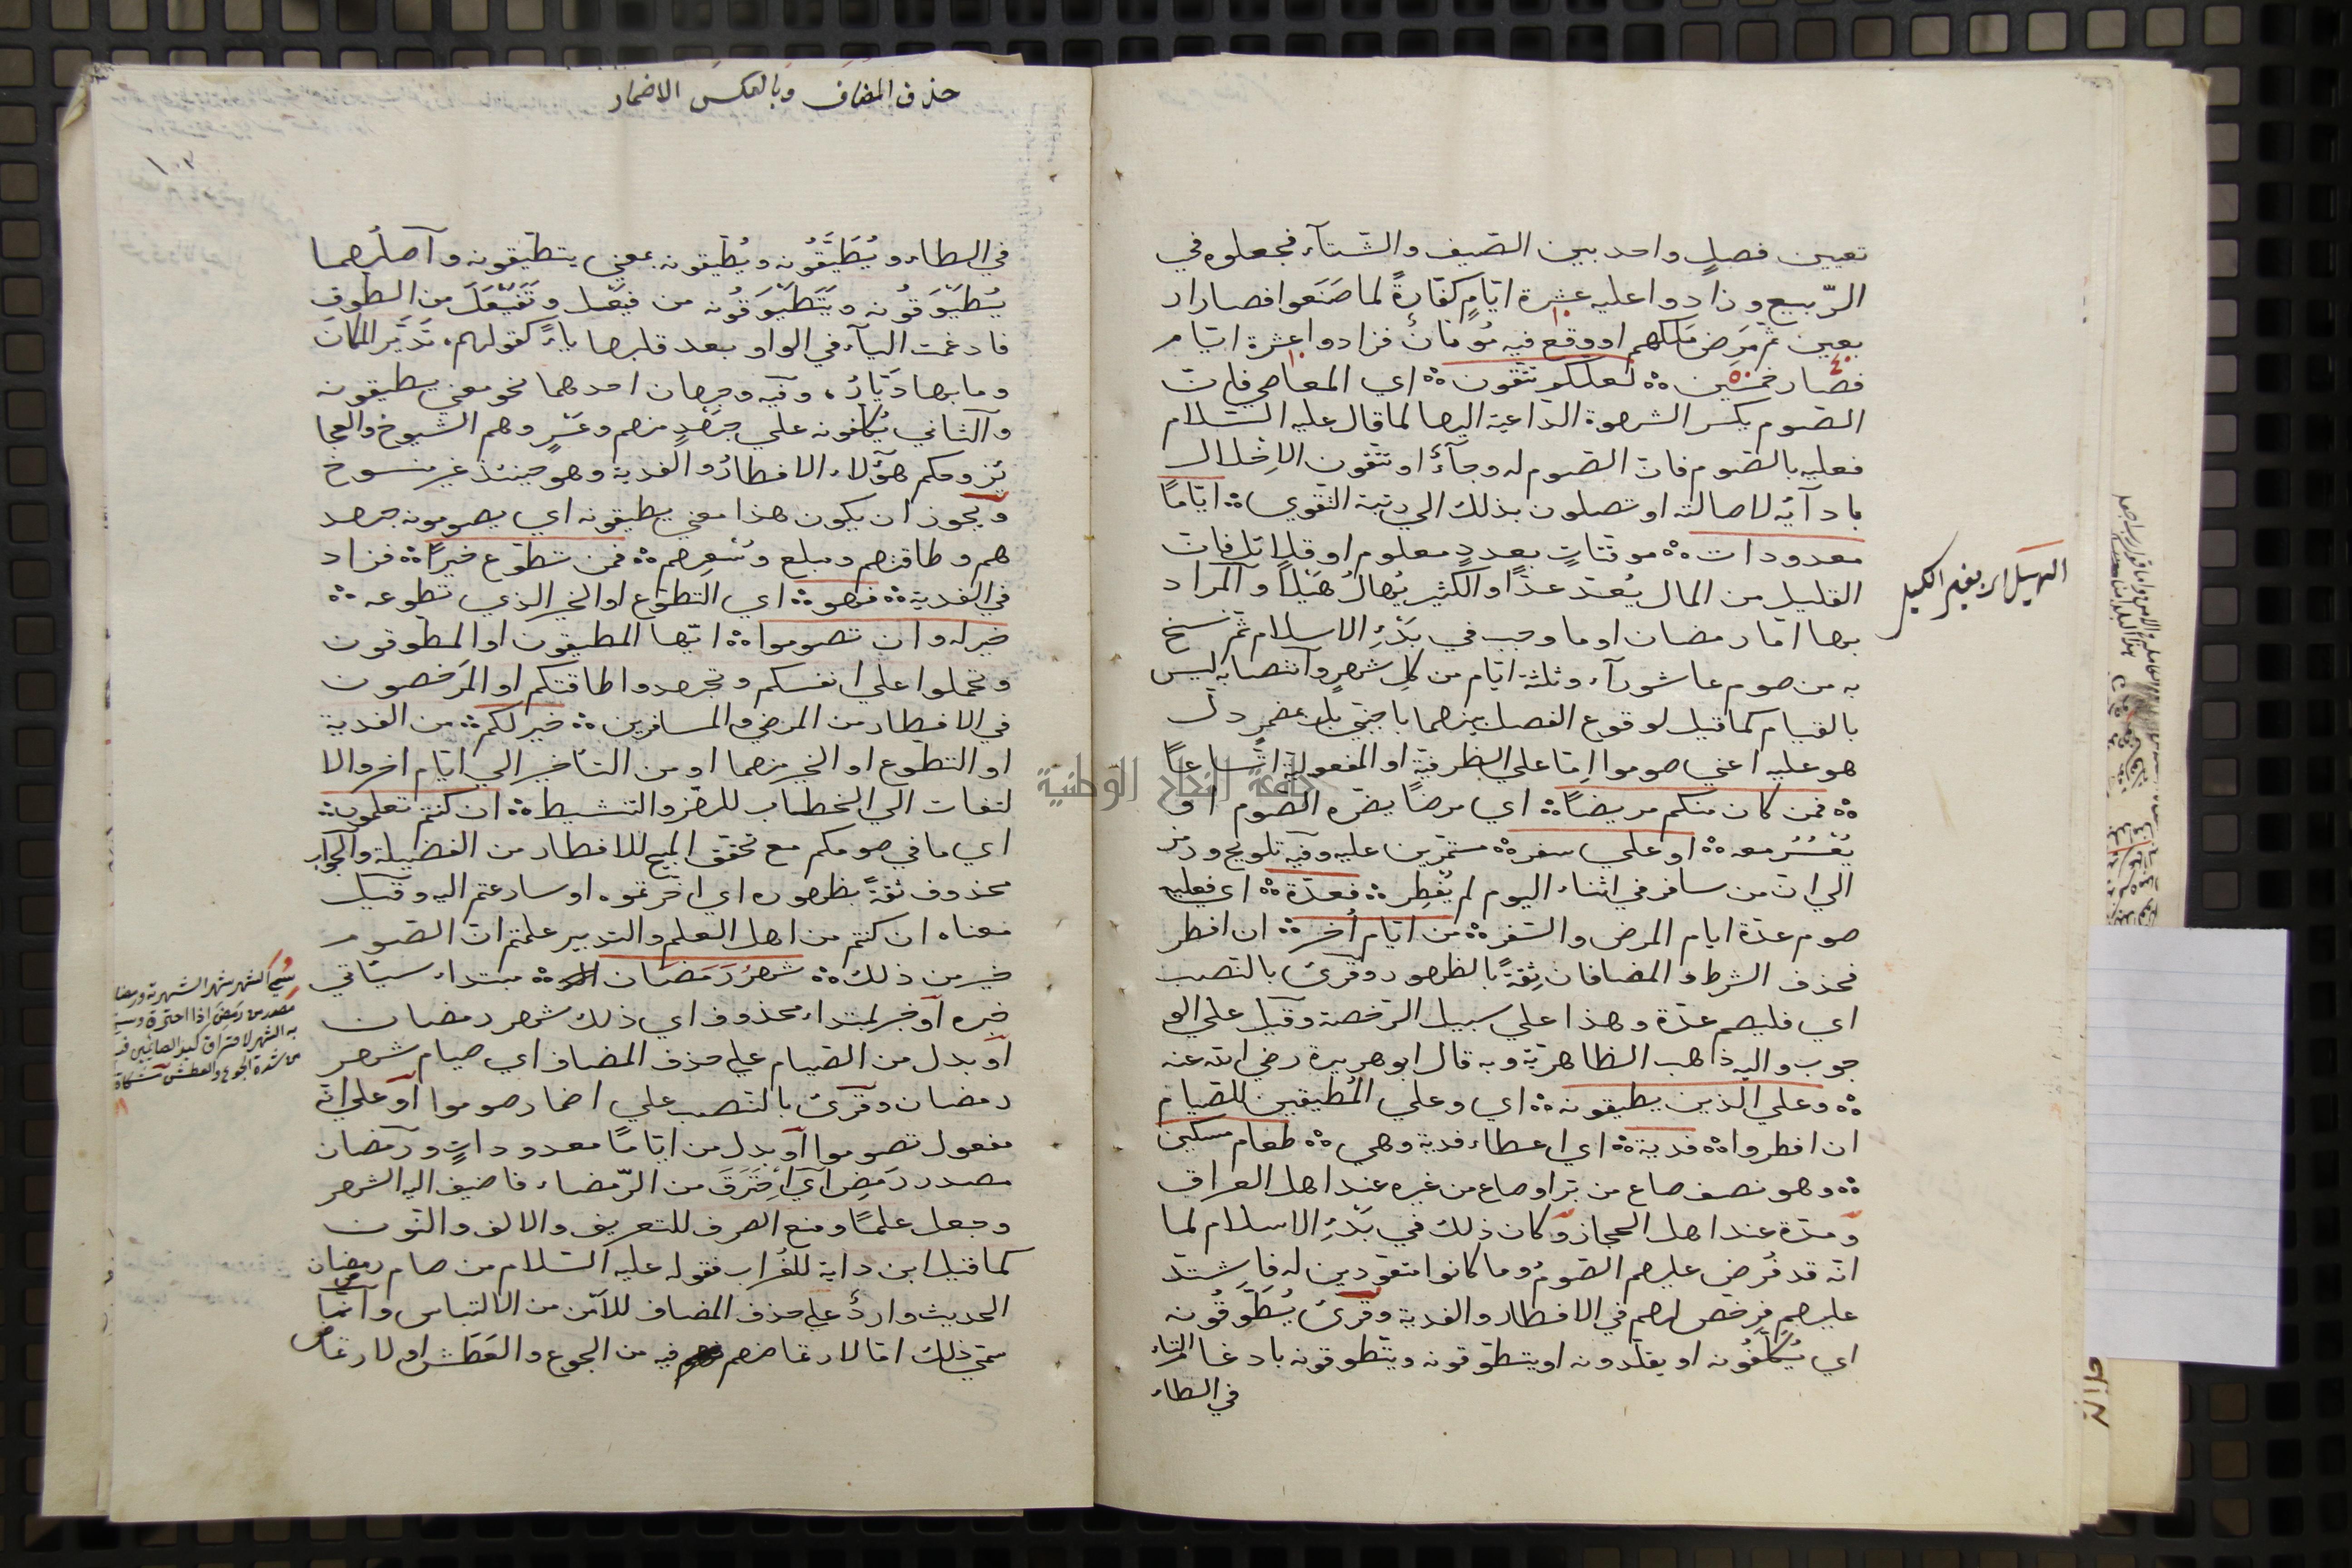 تعيين فصلٍ واحد بين الصّيف والشتآء فجعلوه في
الرّبيع وزادوا عليه عشرة ايّامٍ كفّارةً لما صَنَعوا فصار ار
١٠
بعين ثم مَرَض مَلكهم او وقع فيه مُوتانٌ فزادوا عشرة ايّام
٤٠ ٥٠ ١٠
فصار خمسين لعلكم تتقون اي المعاصي فان
الصّوم يكسر الشهوة الداعية اليها لما قال عليه السّلام
فعليه بالصّوم فان الصّوم له وجآءٌ او تتقون الاِخْلال
بادآئه لاصالته او تصلون بذلك الى رتبة التقوى ايّامًا
معدودات موقتاتٍ بعددٍ معلوم او قلائل فان
القليل من المال يُعَدّ عدًّا والكثير يُهالُ هَيْلًا والمراد
الهيل اي بغير الكيل
بها امّا رمضان او ما وجب في بَدْءِ الاسلام ثم نسخ
به من صوم عاشورآء وثلثة ايّام من كل شهرٍ وآنتصابه ليس
بالقيام كما قيل لوقوع الفصل بينهما باجنبيّ بل بمضمرٍ دلّ
هو عليه اعني صوموا اِمّا على الظرفية او المفعولية اتّساعًا
فمن كان منكم مريضًا اي مرضًا يضرّه الصّوم او
يُعْسُرُ معه او على سفر مستمرين عليه وفيه تلويح ورمز
الى ان من سافر في اثناء اليوم لم يُفْطِر فعدّة اي فعليه
صوم عدّة ايام المرض والسّفر من ايّام أُخر ان افطر
فحذف الشرط والمضافان ثِقةً بالظهور وقرئ بالنّصب
اي فليصم عدّة وهذا على سبيل الرّخصة وقيل على الو
جوب واليه ذاهب الظاهريّة وبه قال ابو هريرة رضي الله عنه
وعلى الذين يطيقونه اي وعلى المُطيقين للصيام
ان افطروا فدية اي اعطاء فدية وهي طعام مسكين
وهو نصف صاع من بّر او صاع من غيره عند اهل العراق
ومدّة عند اهل الحجاز وكان ذلك في بَدْءِ الاسلام لما
انّه قد فُرض عليهم الصّومُ وما كانوا متعوّدين له فاِشتدّ
عليهم فرخّص لهم في الافطار والفدية وقرئ يُطَوَّقُونه
اي يُكَلَّفُونه او يقلّدونه او يتطوّقونه ويتّطوقونه بادغام التّاء
في الطاء
حذف المضاف وبالعكس الاضمار
في الطاء ويُطَيَّقُونه ويُطَّيقونه بمعنى يتطيّقونه وآصلُهما
يُطَيْوَقُونه ويَتَطَيْوَقُونه من فَيْعَل وتَفَيْعَلَ من الطوق
فادغمت اليآء في الواو بعد قلبها ياءً كقولهم تَدَيَّر المكان
وما بها دَيّارٌ، وفيه وجهان احدهما نحو معنى يطيقونه
وآلثاني يُكلّفونه على جَهْدٍ منهم وعُسْرٍ وهم الشيوخ والعجا
ئز وحكم هؤلاء الافطارُ والفدية وهو حينئذ غير منسوخ
ويجوز ان يكون هذا معنى يطيقونه اي يصومونه جهد
هم وطاقتهم ومبلغ وُسْعِهم فمن تطوّع خيرًا فزاد
في الفدية فهو اي التطوّع او الخير الذي تطوعه
خير له وان تصوموا ايّها المطيقون او المطوقون
وتحملوا على انفسكم وتجهدوا طاقتكم او المرَخّصون
في الافطار من المرضى والمسافرين خير لكم من الفدية
او التطوّع او الخير منهما او من التأخير الى ايّام اخر والا
لتفات الى الخطاب للهزّ والتنشيط ان كنتم تعلمون
اي ما في صومكم مع تحقق المبيح للافطار من الفضيلة والجواب
محذوف ثقةً بظهوره اي اخترتموه او سارعتم اليه وقيل
معناه ان كنتم من اهل العلم والتدبير علمتم انّ الصّوم
خير من ذلك شهرُ رَمَضان مبتداء سيأتي
خبره آو خبر لمبتداء محذوف اي ذلك شهر رمضان
آو بدل من الصّيام على حذف المضاف اي صيام شهر
رمضان وقرئ بالنّصب على اضمار صوموا آو على انّه
مفعول تصوموا آو بدل من ايّامًا معدوداتٍ ورمضان
مصدر رَمِضَ آي اِحْتَرَقَ من الرّمضاء فاضيف اليه الشهر
وجعل علمًا ومنع الصرف للتعريف والالف والنّون
كما قيل ابن داية للغُراب فقوله عليه السّلام من صام رمضان
الحديث واردٌ على حذف المضاف للآمن من الالتباس وآنّما
سمّي ذلك امّا لارتماضهم فيه من الجوع والعَطَش او لارتماض
سُمّي الشهر شهرا لشهرته ورمضا
مصدر من رَمِضَ اذا احترق وسمي
به الشهر لاحتراق كبد الصائمين فيه
من شدة الجوع والعطش
جامعة النجاح الوطنية